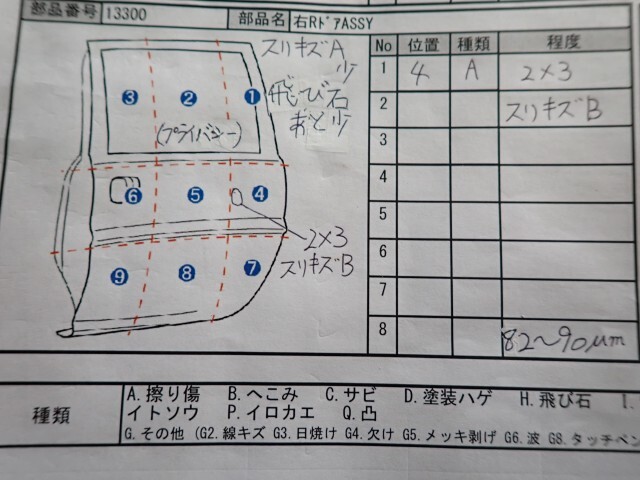 部品番号 13300 部品名 右RドアASSY
スリキズA
少
飛び石
あと少
(プライバシー)
③ ② ①
⑥ ⑤ ④
⑨ ⑧ ⑦
2×3
スリキズB
No 位置 種類 程度
1 4 A 2×3
2 スリキズB
3
4
5
6
7
8 82~90μm
種類
A.擦り傷 B.へこみ C.サビ D.塗装ハゲ H.飛び石 I.
イトソウ P.イロカエ Q.凸
G.その他 (G2.線キズ G3.日焼け G4.欠け G5.メッキ剥げ G6.波 G8.タッチペン